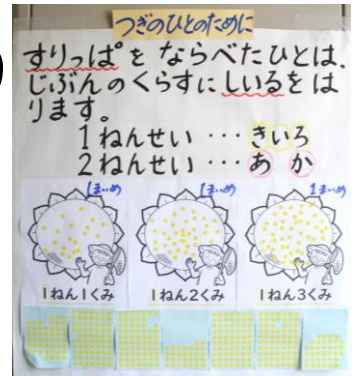 つぎのひとのために
すりっぱを ならべたひとは、
じぶんのくらすにしいるをは
ります。
1ねんせい … きいろ
2ねんせい … あか
1まいめ 1まいめ 1まいめ
1ねん1くみ 1ねん2くみ 1ねん3くみ